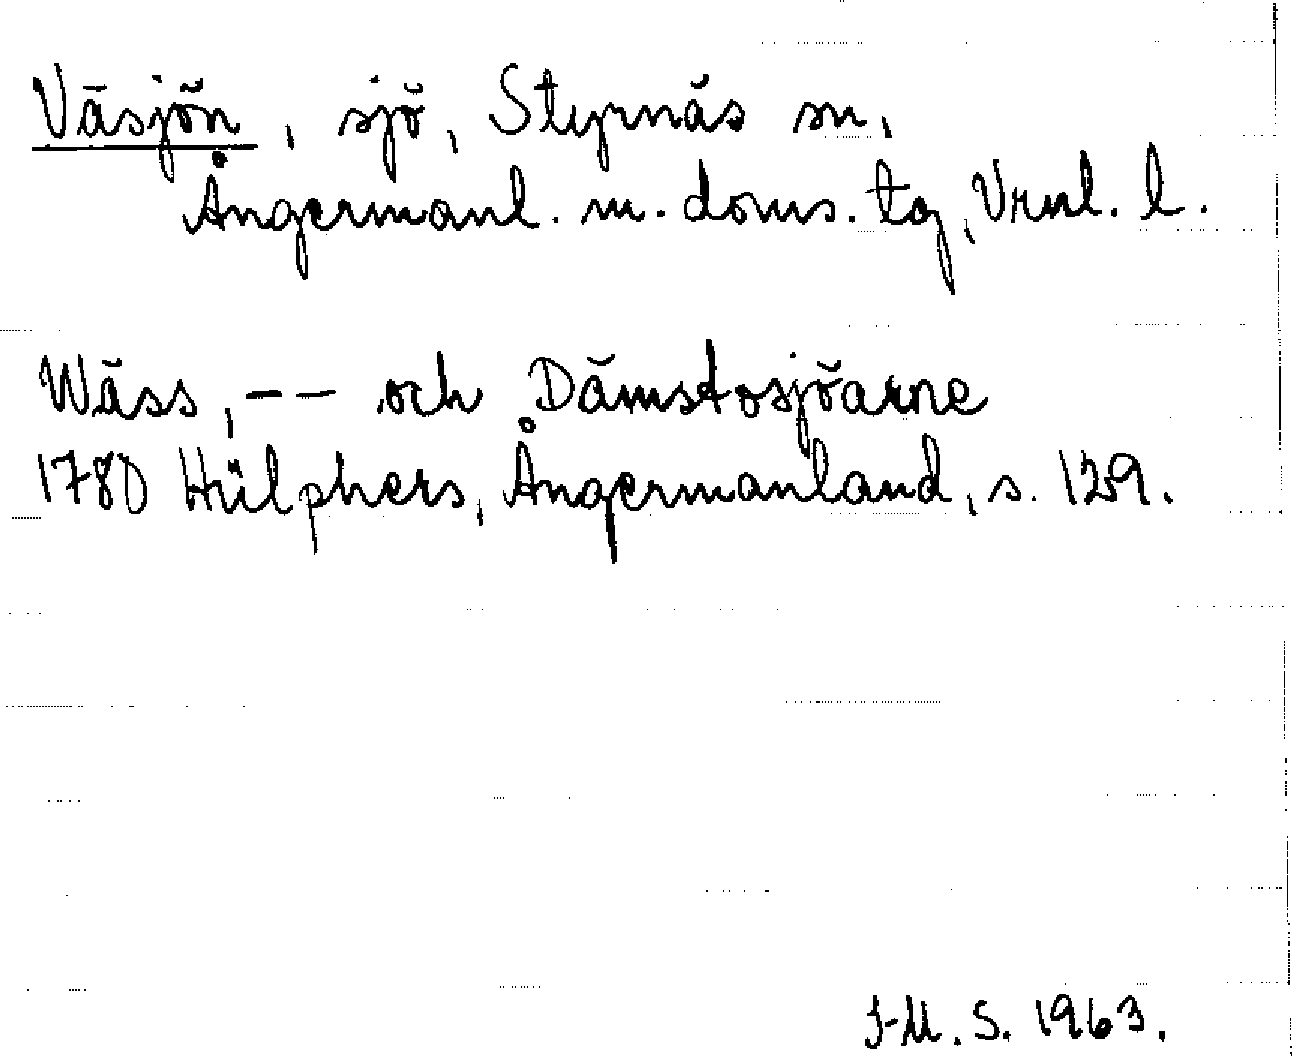 Väsjön, sjö, Styrnäs sn,
Ångermanl. m. doms. tg, Vrnl. l.
Wäss, -- och Dämstasjöarne
1780 Hülphers, Ångermanland, s. 129.
J-M. S. 1963.